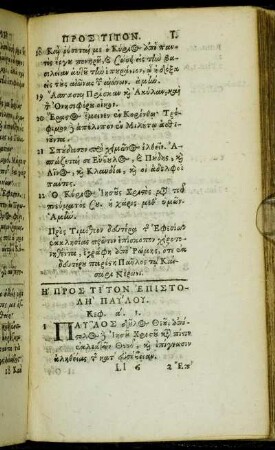 ΠΡΟΣ ΤΙΤΟΝ. Ι.
18 Καὶ ῥύσεταί με ὁ Κύριος ἀπὸ παντὸς
ἔργου πονηροῦ, καὶ σώσει εἰς τὴν βασιλείαν
αὐτοῦ τὴν ἐπουράνιον, ᾧ ἡ δόξα
εἰς τοὺς αἰῶνας τῶν αἰώνων. ἀμήν.
19 Ἄσπασαι Πρίσκαν καὶ Ἀκύλαν, καὶ
τὸν Ὀνησιφόρου οἶκον.
20 Ἔραστος ἔμεινεν ἐν Κορίνθῳ· Τρόφιμον
δὲ ἀπέλιπον ἐν Μιλήτῳ ἀσθενοῦντα.
21 Σπούδασον πρὸ χειμῶνος ἐλθεῖν. Ἀσπάζεταί
σε Εὔβουλος, καὶ Πούδης, καὶ
Λῖνος, καὶ Κλαυδία, καὶ οἱ ἀδελφοὶ
πάντες.
22 Ὁ Κύριος Ἰησοῦς Χριστὸς μετὰ τοῦ
πνεύματός σου. ἡ χάρις μεθ' ὑμῶν.
Ἀμήν.
Πρὸς Τιμόθεον δευτέρα, τῆς Ἐφεσίων
ἐκκλησίας πρῶτον ἐπίσκοπον χειροτονηθέντα,
ἐγράφη ἀπὸ Ῥώμης, ὅτε ἐκ
δευτέρου παρέστη Παῦλος τῷ Καίσαρι
Νέρωνι.
Η ΠΡΟΣ ΤΙΤΟΝ ΕΠΙΣΤΟΛΗ
ΠΑΥΛΟΥ.
Κεφ. α. 1.
1 ΠΑΥΛΟΣ δοῦλος Θεοῦ, ἀπόστολος
δὲ Ἰησοῦ Χριστοῦ κατὰ πίστιν
ἐκλεκτῶν Θεοῦ, καὶ ἐπίγνωσιν
ἀληθείας τῆς κατ' εὐσέβειαν.
Ll 6 2 Ἐπ'